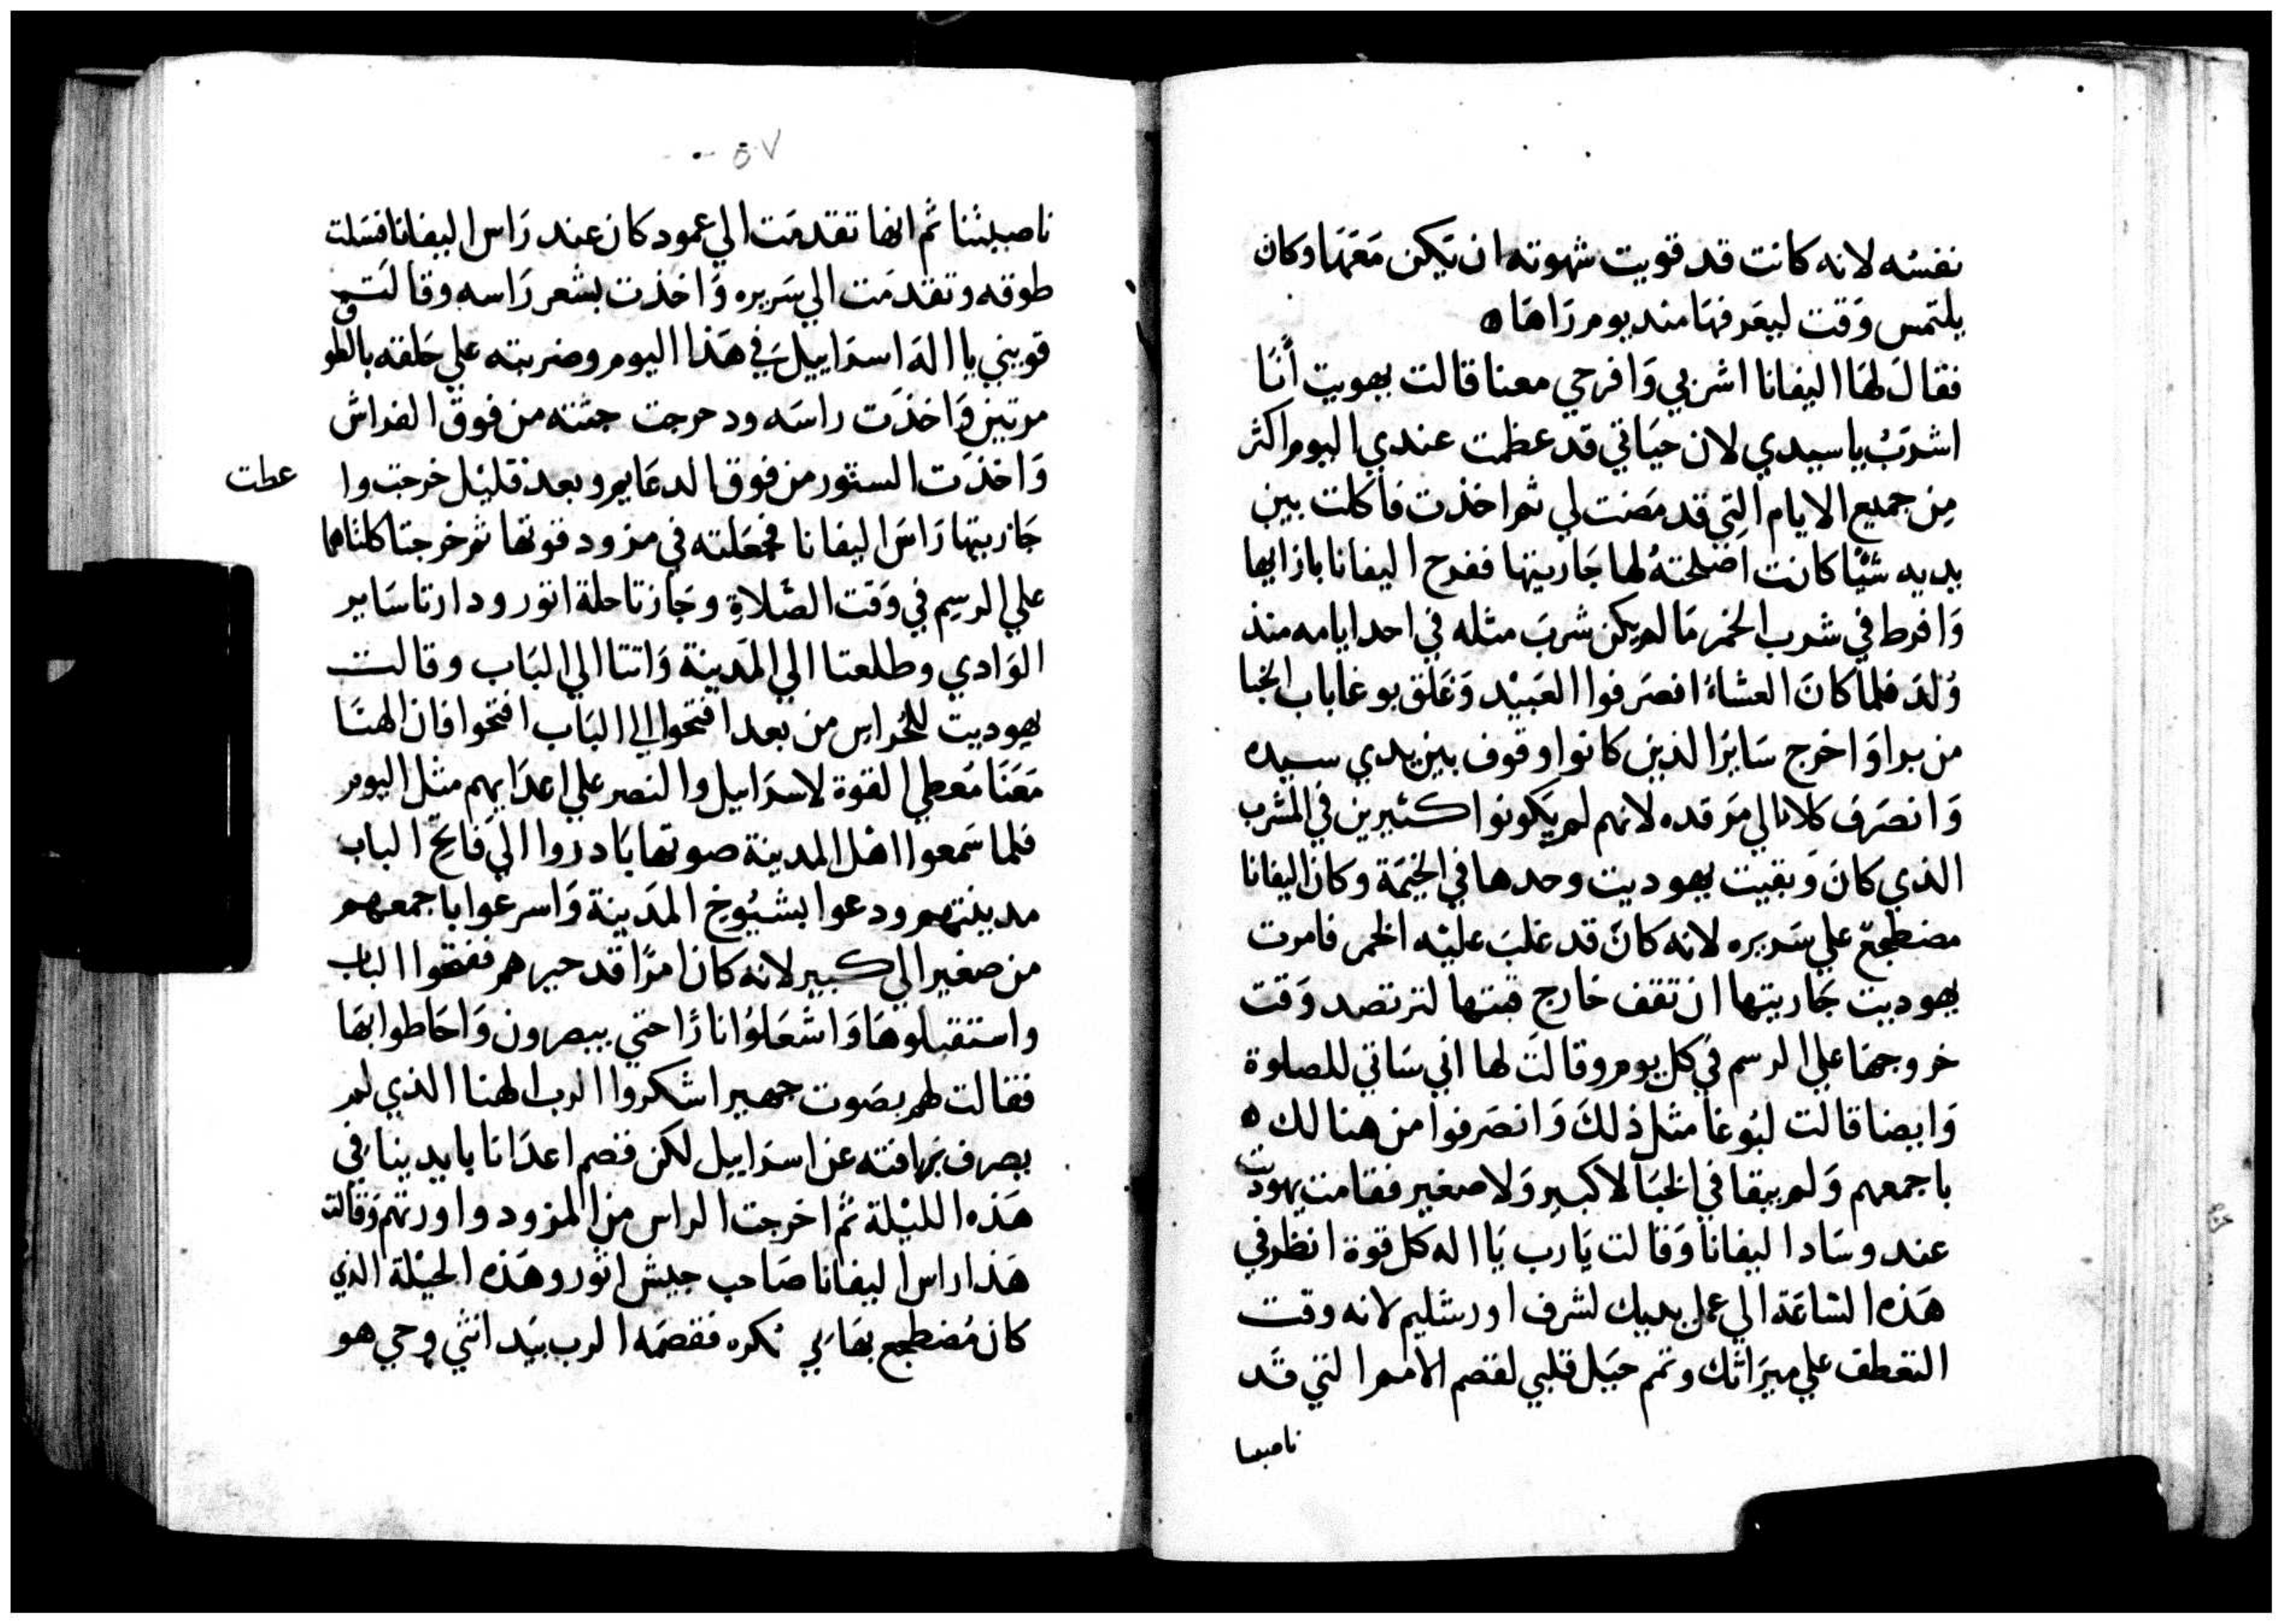 نفسه لانه كانت قد قويت شهوته ان تكن معها وكان
يلتمس وقت ليعرفها منذ يوم راها ه
فقال لها اليفانا اشربي وافرحي معنا قالت يهوديت أنا
اشرب يا سيدي لان حياتي قد عظمت عندي اليوم اكثر
من جميع الايام التي قد مضت لي ثم اخذت فاكلت بين
يديه شيًا كانت اصلحته لها جاريتها ففرح اليفانا بازايها
وافرط في شرب الخمر ما لم يكن شرب مثله في احد ايامه منذ
ولد فلما كان العشاء انصرفوا العبيد وغلق بوغا باب الخبا
من برا واخرج ساير الذين كانوا وقوف بين يدي سيده
وانصرف كلا الي مرقده لانهم لم يكونوا كثيرين في المشرب
الذي كان وبقيت يهوديت وحدها في الخيمة وكان اليفانا
مضطجع علي سريره لانه كان قد غلب عليه الخمر فامرت
يهوديت جاريتها ان تقف خارج قبتها لترتصد وقت
خروجها علي الرسم في كل يوم وقالت لها اني ساتي للصلوة
وايضا قالت لبوغا مثل ذلك وانصرفوا من هنالك ه
باجمعهم ولم يبقا في الخبا لا كبير ولا صغير فقامت يهوديت
عند وساد اليفانا وقالت يا رب يا اله كل قوة انظر في
هذه الساعة الي عمل يديك لشرف اورشليم لانه وقت
التعطف علي ميراثك وتمم حيل قلبي لقصم الامم التي قد
ناصبتنا
٥٧
ناصبتنا ثم انها تقدمت الي عمود كان عند راس اليفانا فسلت
طوقه وتقدمت الي سريره واخذت بشعر راسه وقالت
قويني يا اله اسراييل في هذا اليوم وضربته علي حلقه بالطوق
مرتين واخذت راسه ودحرجت جثته من فوق الفراش
واخذت الستور من فوق الدعايم وبعد قليل خرجت وا عطت
جاريتها راس اليفانا فجعلته في مزود قوتها ثم خرجتا كلتاهما
علي الرسم في وقت الصلاة وجازتا حلة اتور ودارتا ساير
الوادي وطلعتا الي المدينة واتتا الي الباب وقالت
يهوديت للحراس من بعد افتحوا لي الباب افتحوا فان الهنا
معنا معطي القوة لاسراييل والنصر علي اعدايهم مثل اليوم
فلما سمعوا اهل المدينة صوتها بادروا الي فاتح الباب
مدينتهم ودعوا بشيوخ المدينة واسرعوا باجمعهم
من صغير الي كبير لانه كان امرًا قد حيرهم ففتحوا الباب
واستقبلوها واشعلوا نارًا حتي يبصرون واحاطوا بها
فقالت لهم بصوت جهير اشكروا الرب الهنا الذي لم
يصرف رافته عن اسراييل لكن قصم اعدانا بايدينا في
هذه الليلة ثم اخرجت الراس من المزود واورتهم وقالت
هذا راس اليفانا صاحب جيش اتور وهذه الحيلة الذي
كان مضطجع بها في سكره فقصمه الرب بيد انثي وحي هو